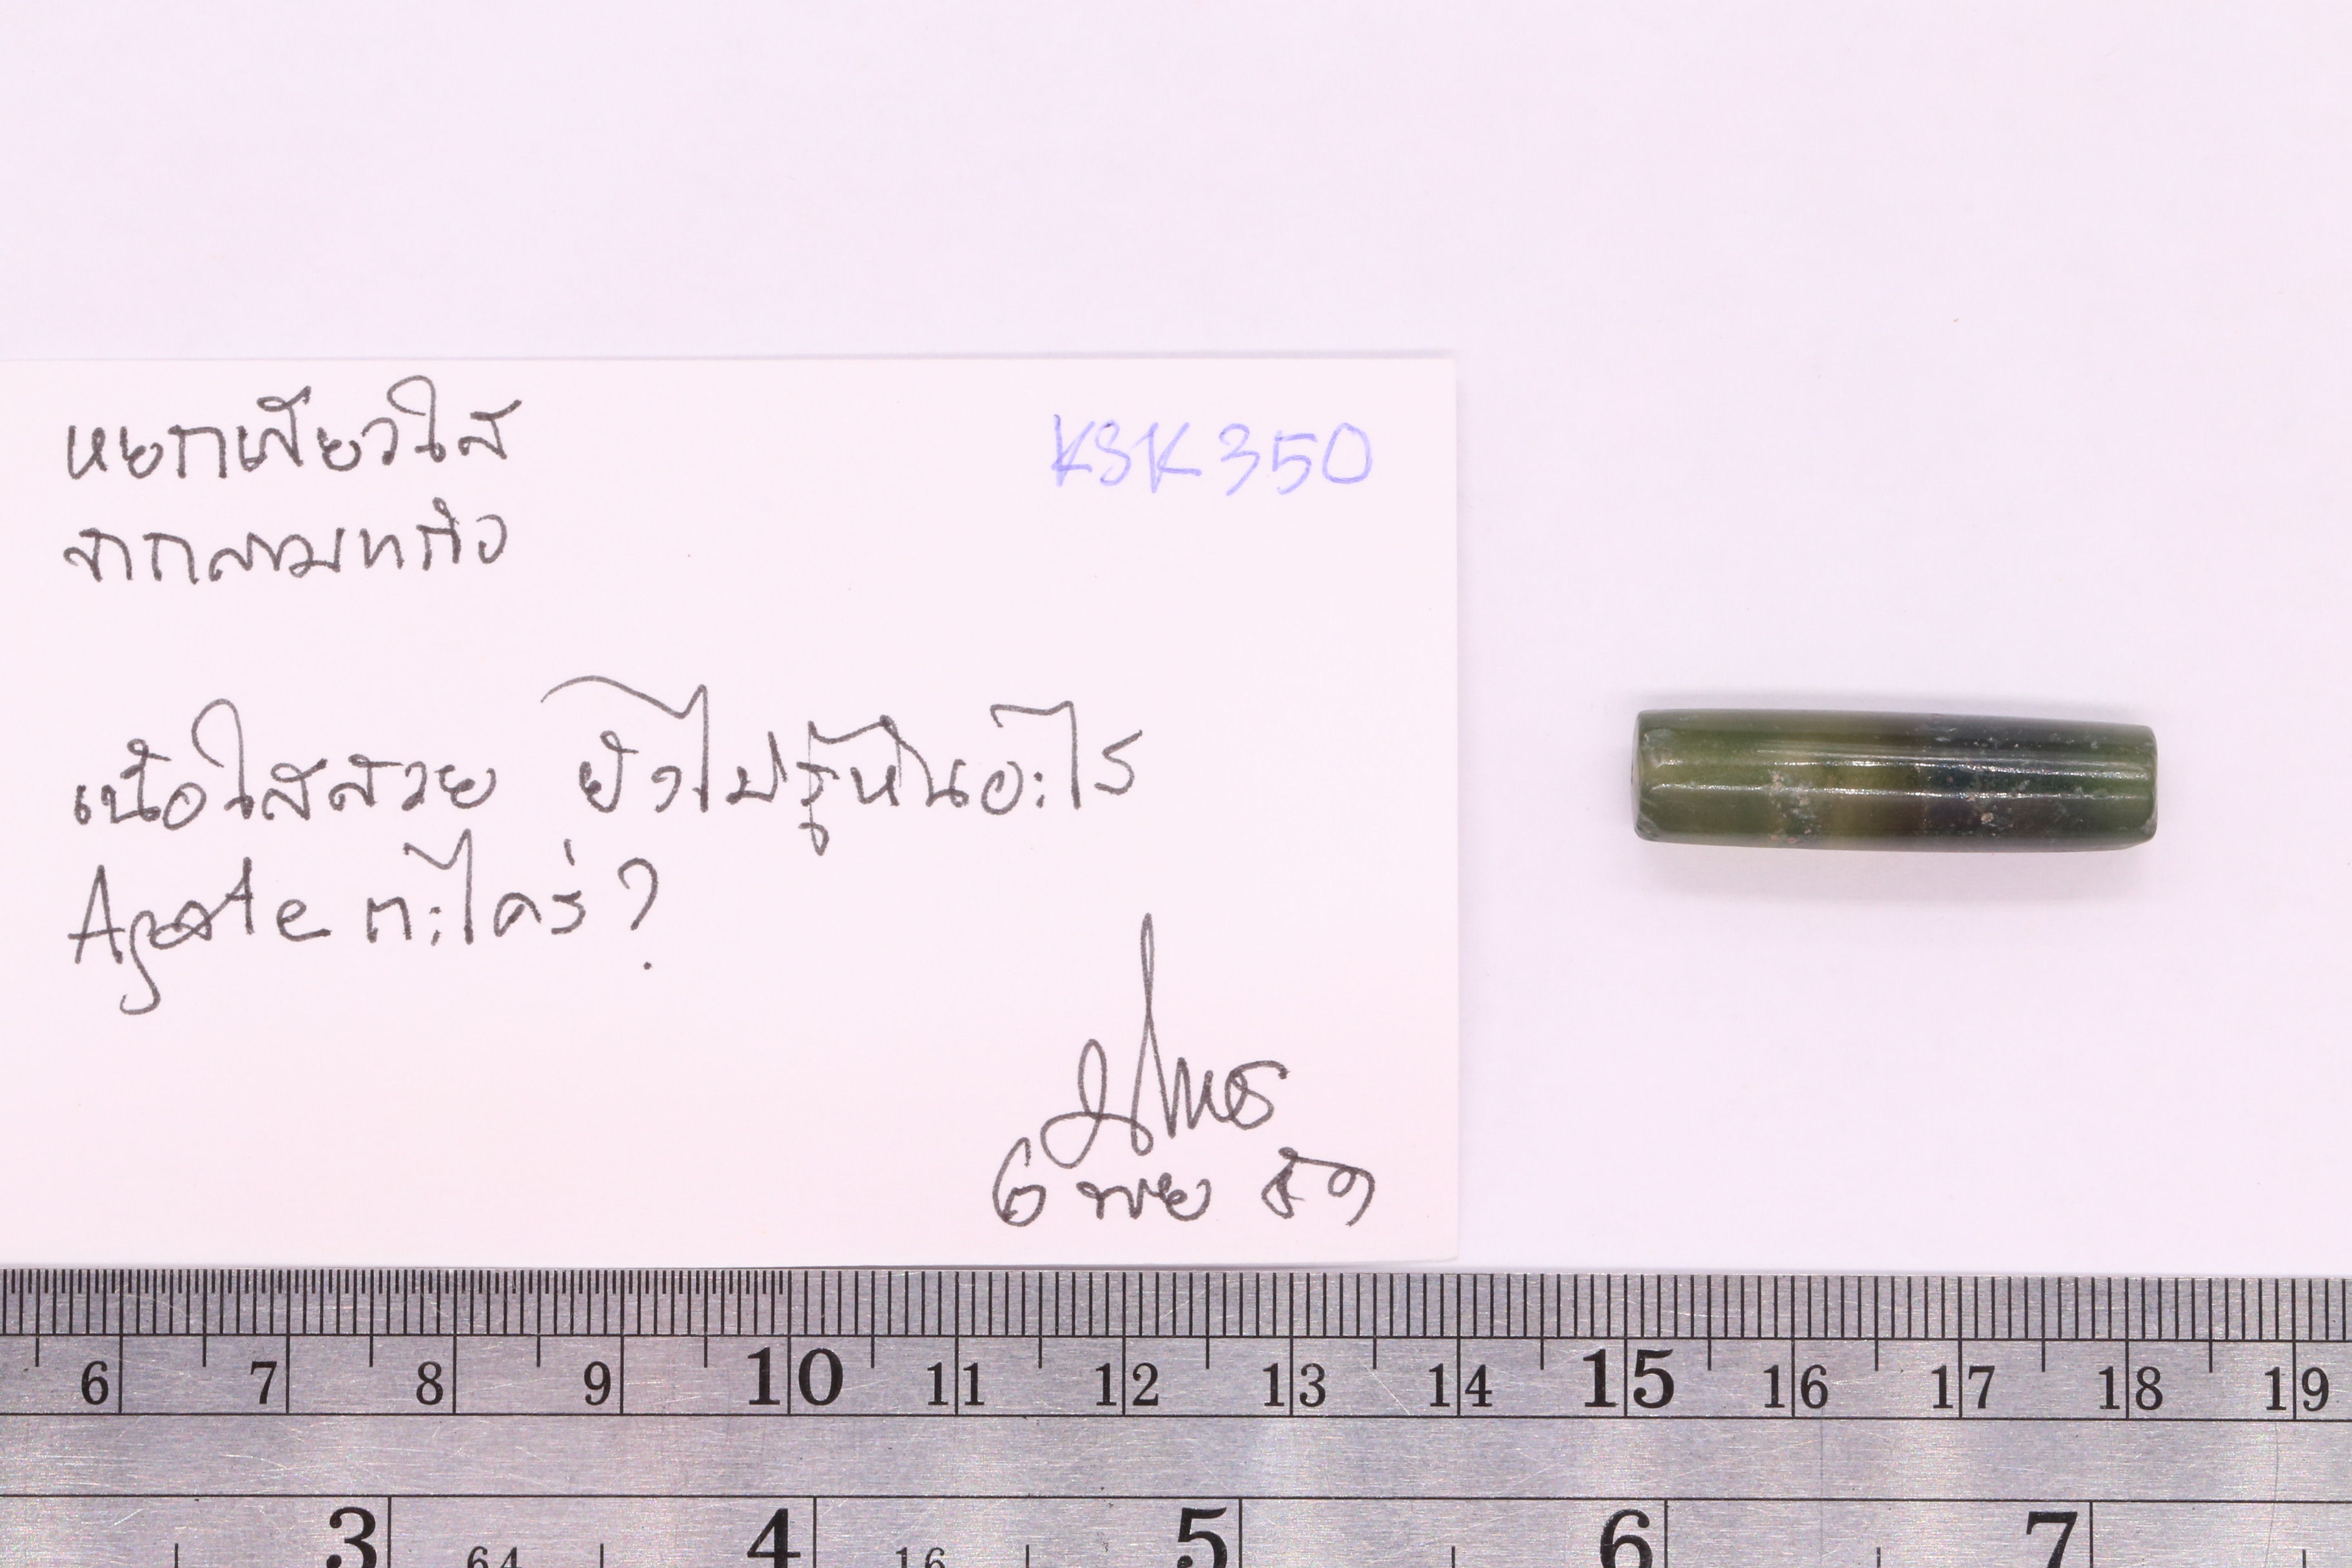 หยกเสียวใส
KSK350
จากสามแก้ว
เนื้อใสสวย ยังไม่รู้หินอะไร
Agate ตะไคร่?
6 พย
6 7 8 9 10 11 12 13 14 15 16 17 18 19
3 4 5 6 7
64 16